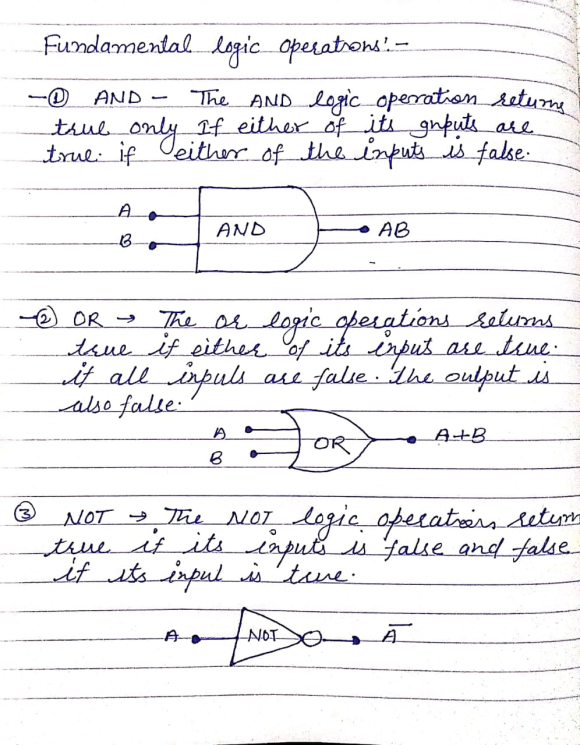 Fundamental logic operations:-
-① AND - The AND logic operration returns
true only If either of its gnputs are
true. if either of the inputs is false.
A
AND
AB
B
-② OR → The or logic operations returns
true if either of its input are true.
if all inputs are false. The output is
also false.
A
OR
A+B
B
③ NOT → The NOT logic operations return
true if its inputs is false and false
if its input is true.
A
NOT
A̅